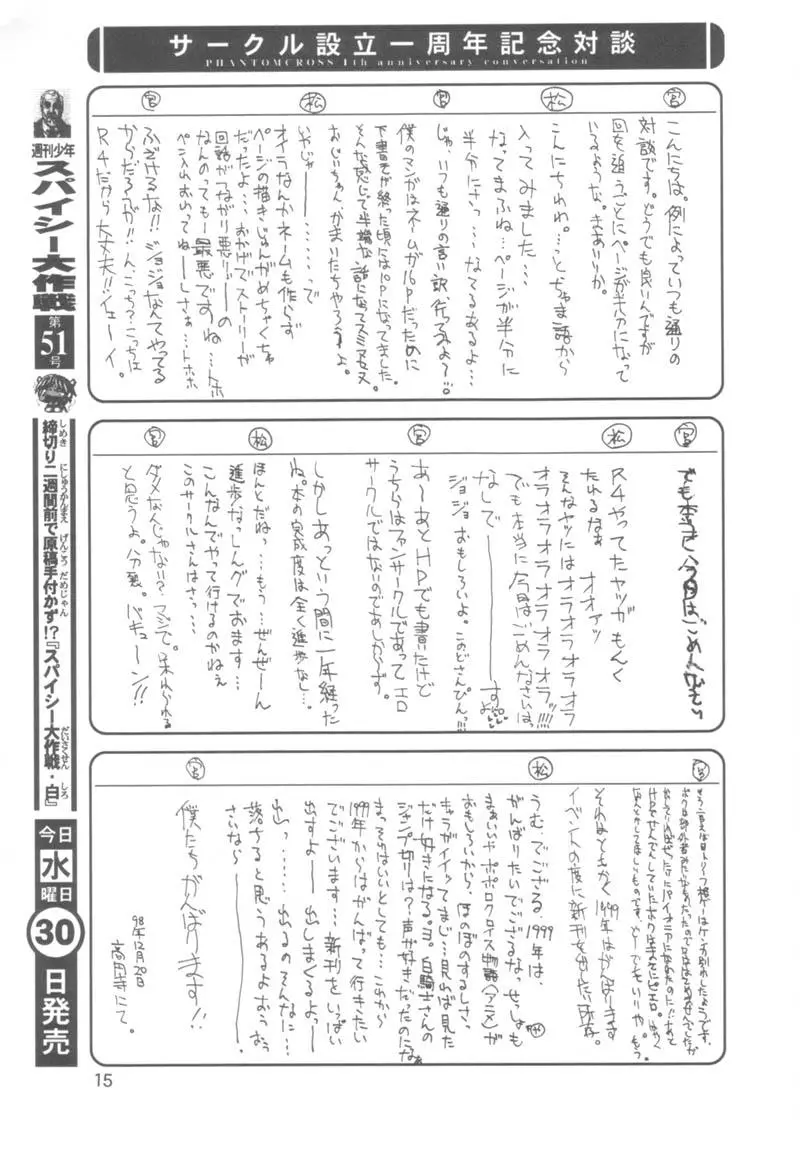 サークル設立一周年記念対談
PHANTOMCROSS 1th anniversary conversation
宮
こんにちは。例によっていつも通りの
対談です。どうでも良いんですが
回を追うごとにページが半分になって
いるような。きあいりか。
松
こんにちわわ。…とちゅま語から
入ってみました…
なってまふね…ページが半分に
半分にさっ…なてるあるよ…
宮
じゃ、いつも通りの言い訳、行ってみよ〜!!
僕のマンガはネームが16Pだったために
下書きが終った頃には10Pになってました。
そんな感じで半端な話になってスミマセヌ
おじいちゃん、かまいたちやろうよ。
松
いやじゃ――………で
オイラなんかネームも作らず
ページの描きじゅんがめちゃくちゃ
だったよ…おかげでストーリーが
回話がつながり悪りィ――の
なんのっても――最悪ですね…トホ
ペン入れおわってね――しさぁ…トホホ
宮
ふざけるな!!ジョジョなんてやってる
からだろうが!!
R4だから大丈夫!!イェーイ。
宮
でも本当に今回はごめんなさい
松
R4やってたヤツがもんく
たれるなぁ オオァッ
そんなヤツにはオラオラオラオラ
オラオラオラオラオラオラオラッ!!!!
でも本当に今回はごめんなさいは、
なしで――――――すよ
ジョジョおもしろいよ。このどさんぴんっ!!!
宮
あ〜あとHPでも書いたけど
うちらはファンサークルであってエロ
サークルではないのであしからず。
しかしあっという間に一年経った
ね。本の完成度は全く進歩なし…。
松
ほんとだねっ…もう…ぜんぜーん
進歩なっしんグでおます…
こんなんでやって行けるのかねぇ
このサークルさんはさっ…
宮
ダメなんじゃない?マジで。
と思うよ。分裂。バキューン!!
宮
それはともかく1999年はがんばります
イベントの度に新刊を出したい所存。
松
うむ、でござる、1999年は、
がんばりたいでござるなっせっしゃも
まぁいいやポポロクロイス物語(アニメ)が
おもしろいから、ほのぼのするしさ、
キャラがイイッてまじ…見れば見た
だけ好きになる。ヨ。白騎士さんの
ジャンプ切りは?声が好きだったのになぁ
まっそれはいいとしても…これから
199年からはがんばって行きたい
でございます…新刊をいっぱい
出すよ――出しまくるよ――
出っ……出るのそんなに…
落ちると思うあるよおぅおぅ
さいなら――――。
宮
僕たちがんばります!!
98年12月20日
高田寺にて。
週刊少年
スパイシー大作戦
第51号
締切り二週間前で原稿手付かず!?『スパイシー大作戦・白』
しめき にしゅうかんまえ げんこう だめじゃん だいさくせん しろ
今日
水
曜日
30
日発売
15